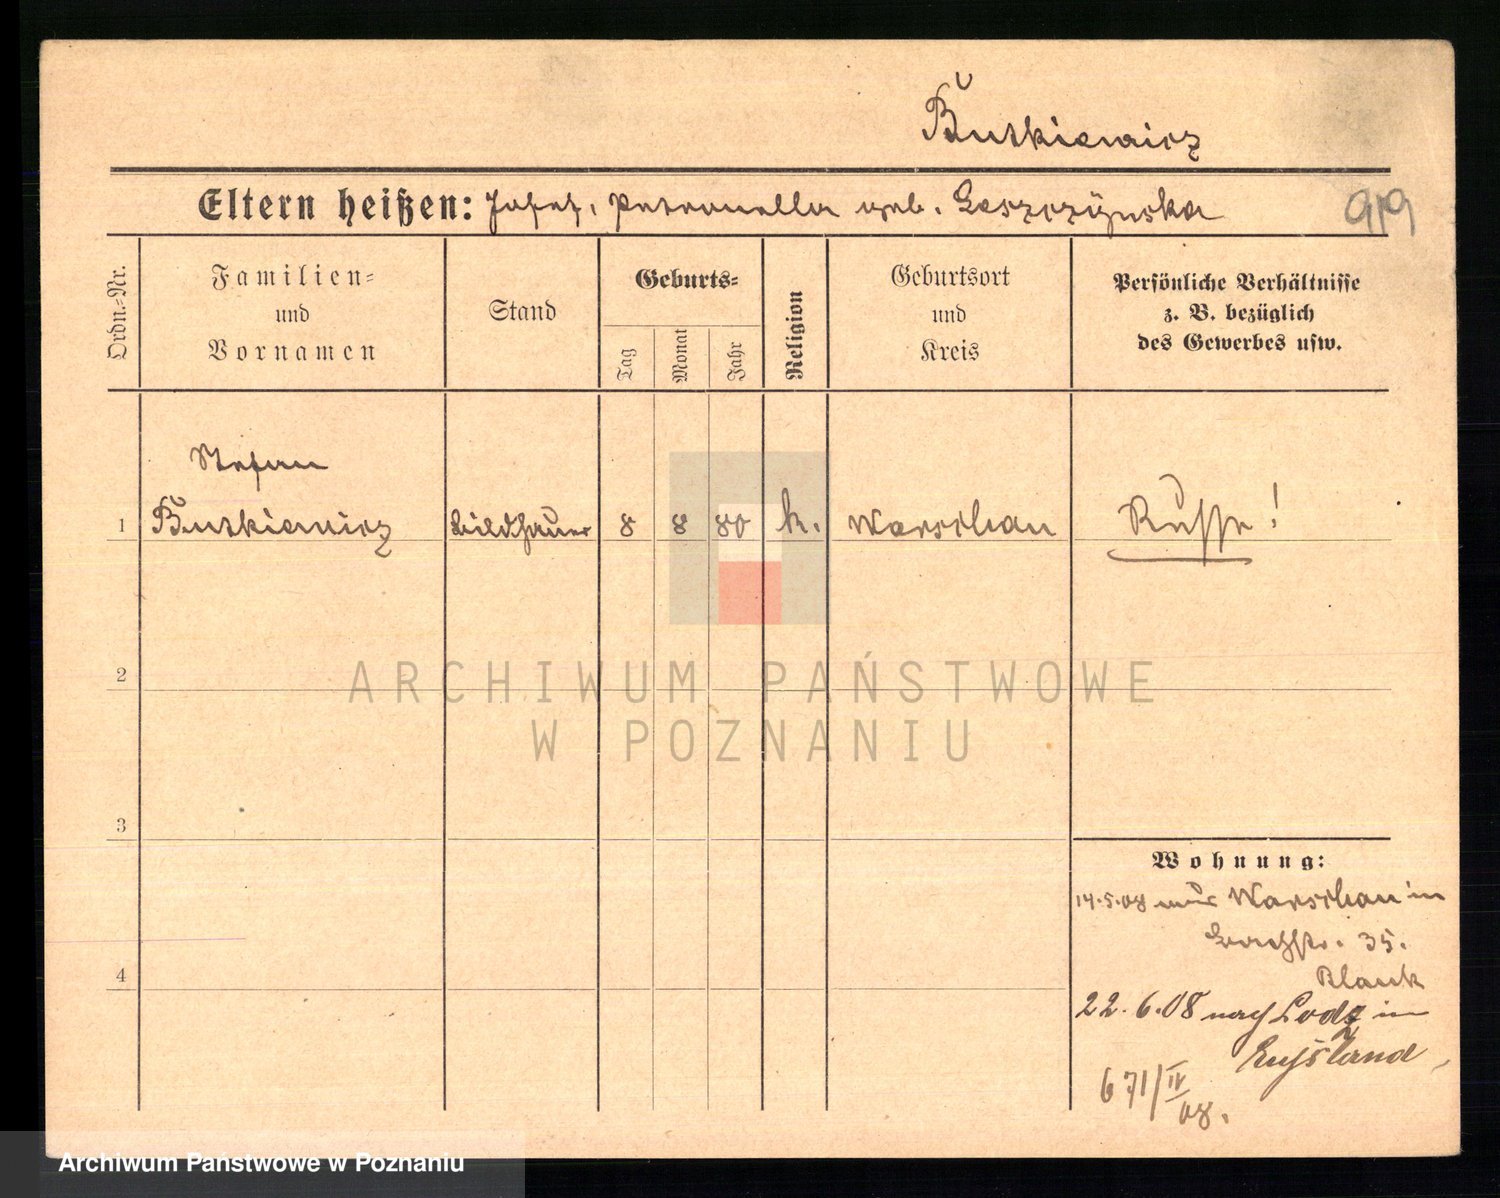 Butkiewicz
Eltern heißen: Josef, Petronella geb. Leszczynska
Ordn.-Nr.
Familien- und Vornamen
Stand
Geburts-
Tag
Monat
Jahr
Religion
Geburtsort und Kreis
Persönliche Verhältnisse
z. B. bezüglich
des Gewerbes usw.
Stefan
1 Butkiewicz Bildhauer 8 8 80 k. Warschau Russe!
2
ARCHIWUM PAŃSTWOWE
W POZNANIU
3
Wohnung:
14.5.08 aus Warschau in
35.
Blank
4
22.6.08 nach Lodz in
Russland
671/IV
08.
Archiwum Państwowe w Poznaniu